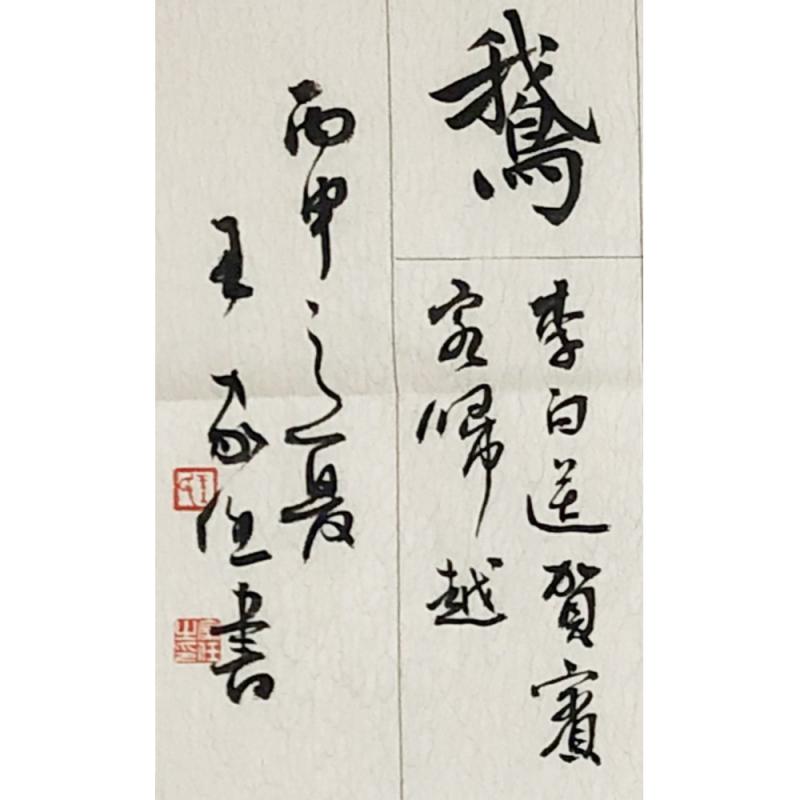 鵞
李白送賀賓
客歸越
丙申之夏
王家書